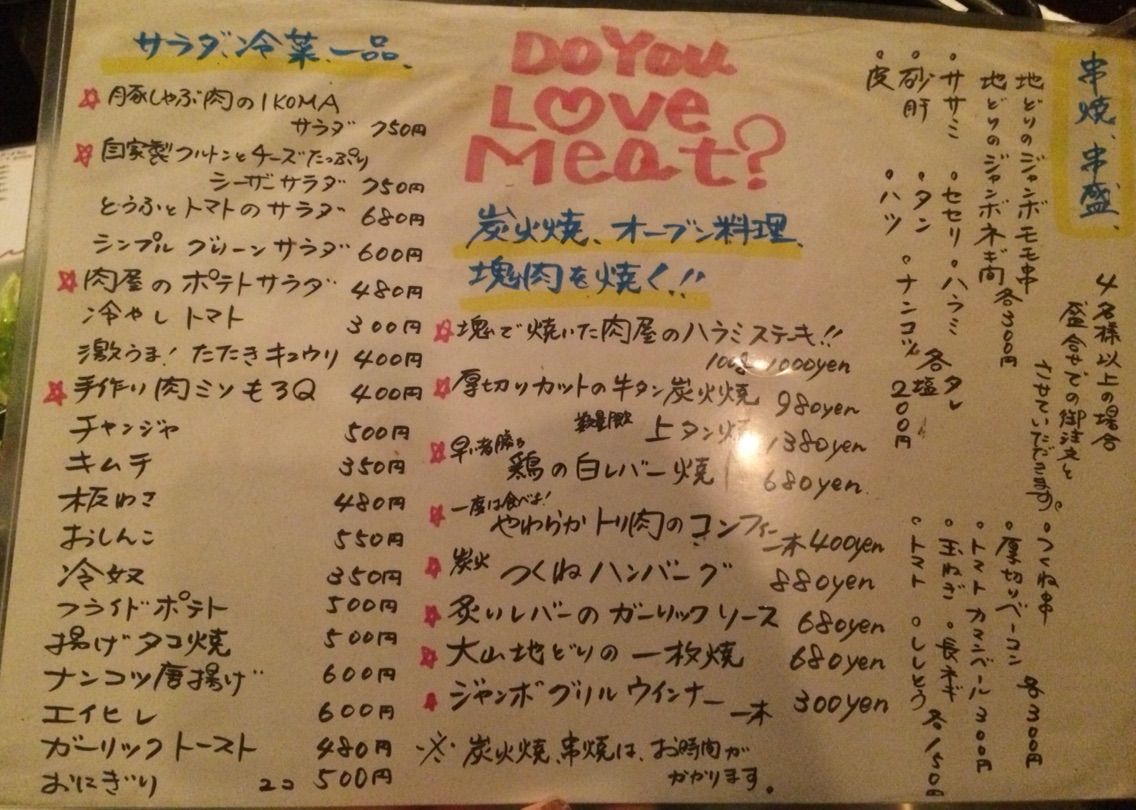 サラダ、冷菜、一品、
☆豚しゃぶ肉のIKOMA
サラダ 750円
☆自家製クルトンとチーズたっぷり
シーザーサラダ 750円
とうふとトマトのサラダ 680円
シンプルグリーンサラダ 600円
☆肉屋のポテトサラダ 480円
冷やしトマト 300円
激うま!たたきキュウリ 400円
☆手作り肉ミソもろQ 400円
チャンジャ 500円
キムチ 350円
板わさ 480円
おしんこ 550円
冷奴 350円
フライドポテト 500円
揚げタコ焼 500円
ナンコツ唐揚げ 600円
エイヒレ 600円
ガーリックトースト 480円
おにぎり 2コ 500円
Do You
Love
Meat?
炭火焼、オーブン料理、
塊肉を焼く!!
☆塊で焼いた肉屋のハラミステーキ!!
100g 1000yen
☆厚切りカットの牛タン炭火焼 980yen
数量限定 上タン焼 1380yen
☆早い者勝ち
鶏の白レバー焼 680yen
☆一度は食べよ!
やわらかトリ肉のコンフィー
一本 400yen
☆炭火 つくねハンバーグ 880yen
☆炙いレバーのガーリックソース 680yen
☆大山地どりの一枚焼 680yen
☆ジャンボグリルウインナー 一本 300yen
※炭火焼、串焼は、お時間が
かかります。
串焼、串盛、
4名様以上の場合
盛合せでの御注文と
させていただきます。
地どりのジャンボモモ串
地どりのジャンボネギ間 各300円
・ササミ ・セセリ ・ハラミ
・砂肝 ・タン ・ナンコツ
・皮 ・ハツ
各 タレ
塩 200円
・つくね串
・厚切りベーコン 各300円
・トマトカマンベール 300円
・玉ねぎ ・長ネギ
・トマト ・ししとう 各150円